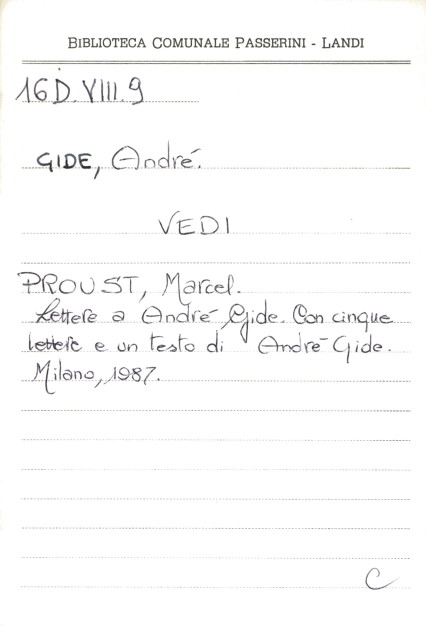 BIBLIOTECA COMUNALE PASSERINI - LANDI
16D.VIII.9
GIDE, André.
VEDI
PROUST, Marcel.
Lettere a André Gide. Con cinque
lettere e un testo di André Gide.
Milano, 1987.
C